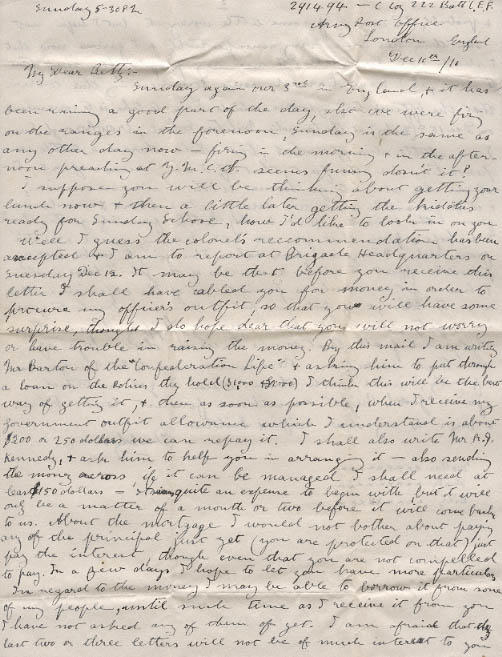 Sunday 5.30 P.M.
291494 - C Coy 222 Batt C.E.F.
Army Post Office
London England
Dec 10th/16
My Dear Betty:-
Sunday again our 3rd in England, & it has
been raining a good part of the day, also we were firing
on the ranges in the forenoon, Sunday is the same as
any other day now - firing in the morning & in the after-
noon preaching at Y.M.C.A. seems funny don't it?
I suppose you will be thinking about getting your
lunch now & then a little later getting the kiddies
ready for Sunday School, how I'd like to look in on you
Well I guess the colonel's reccommendation has been
accepted & I am to report at Brigade Headquarters on
Tuesday Dec 12. It may be that before you receive this
letter I shall have cabled you for money in order to
procure my officer's outfit, so that you will have some
surprise, though I do hope dear that you will not worry
or have trouble in raising the money. By this mail I am writing
Mr Barton of the "Confederation Life" & asking him to put through
a loan on the Policies they hold ($1500 & $1000) I think this will be the best
way of getting it, & then as soon as possible, when I receive my
government outfit allowance which I understand is about
$200 or 250 dollars we can repay it. I shall also write Mr A.J.
Kennedy, & ask him to help you in arranging it - also sending
the money across, if it can be managed I shall need at
least $150 dollars - quite an expense to begin with but it will
only be a matter of a month or two before it will come back
to us. About the mortgage I would not bother about paying
any of the principal just yet (you are protected on that) just
pay the interest, though even that you are not compelled
to pay. In a few days I hope to let you have more particulars
In regard to the money I may be able to borrow it from some
of my people, until such time as I receive it from you
I have not asked any of them as yet. I am afraid that my
last two or three letters will not be of much interest to you